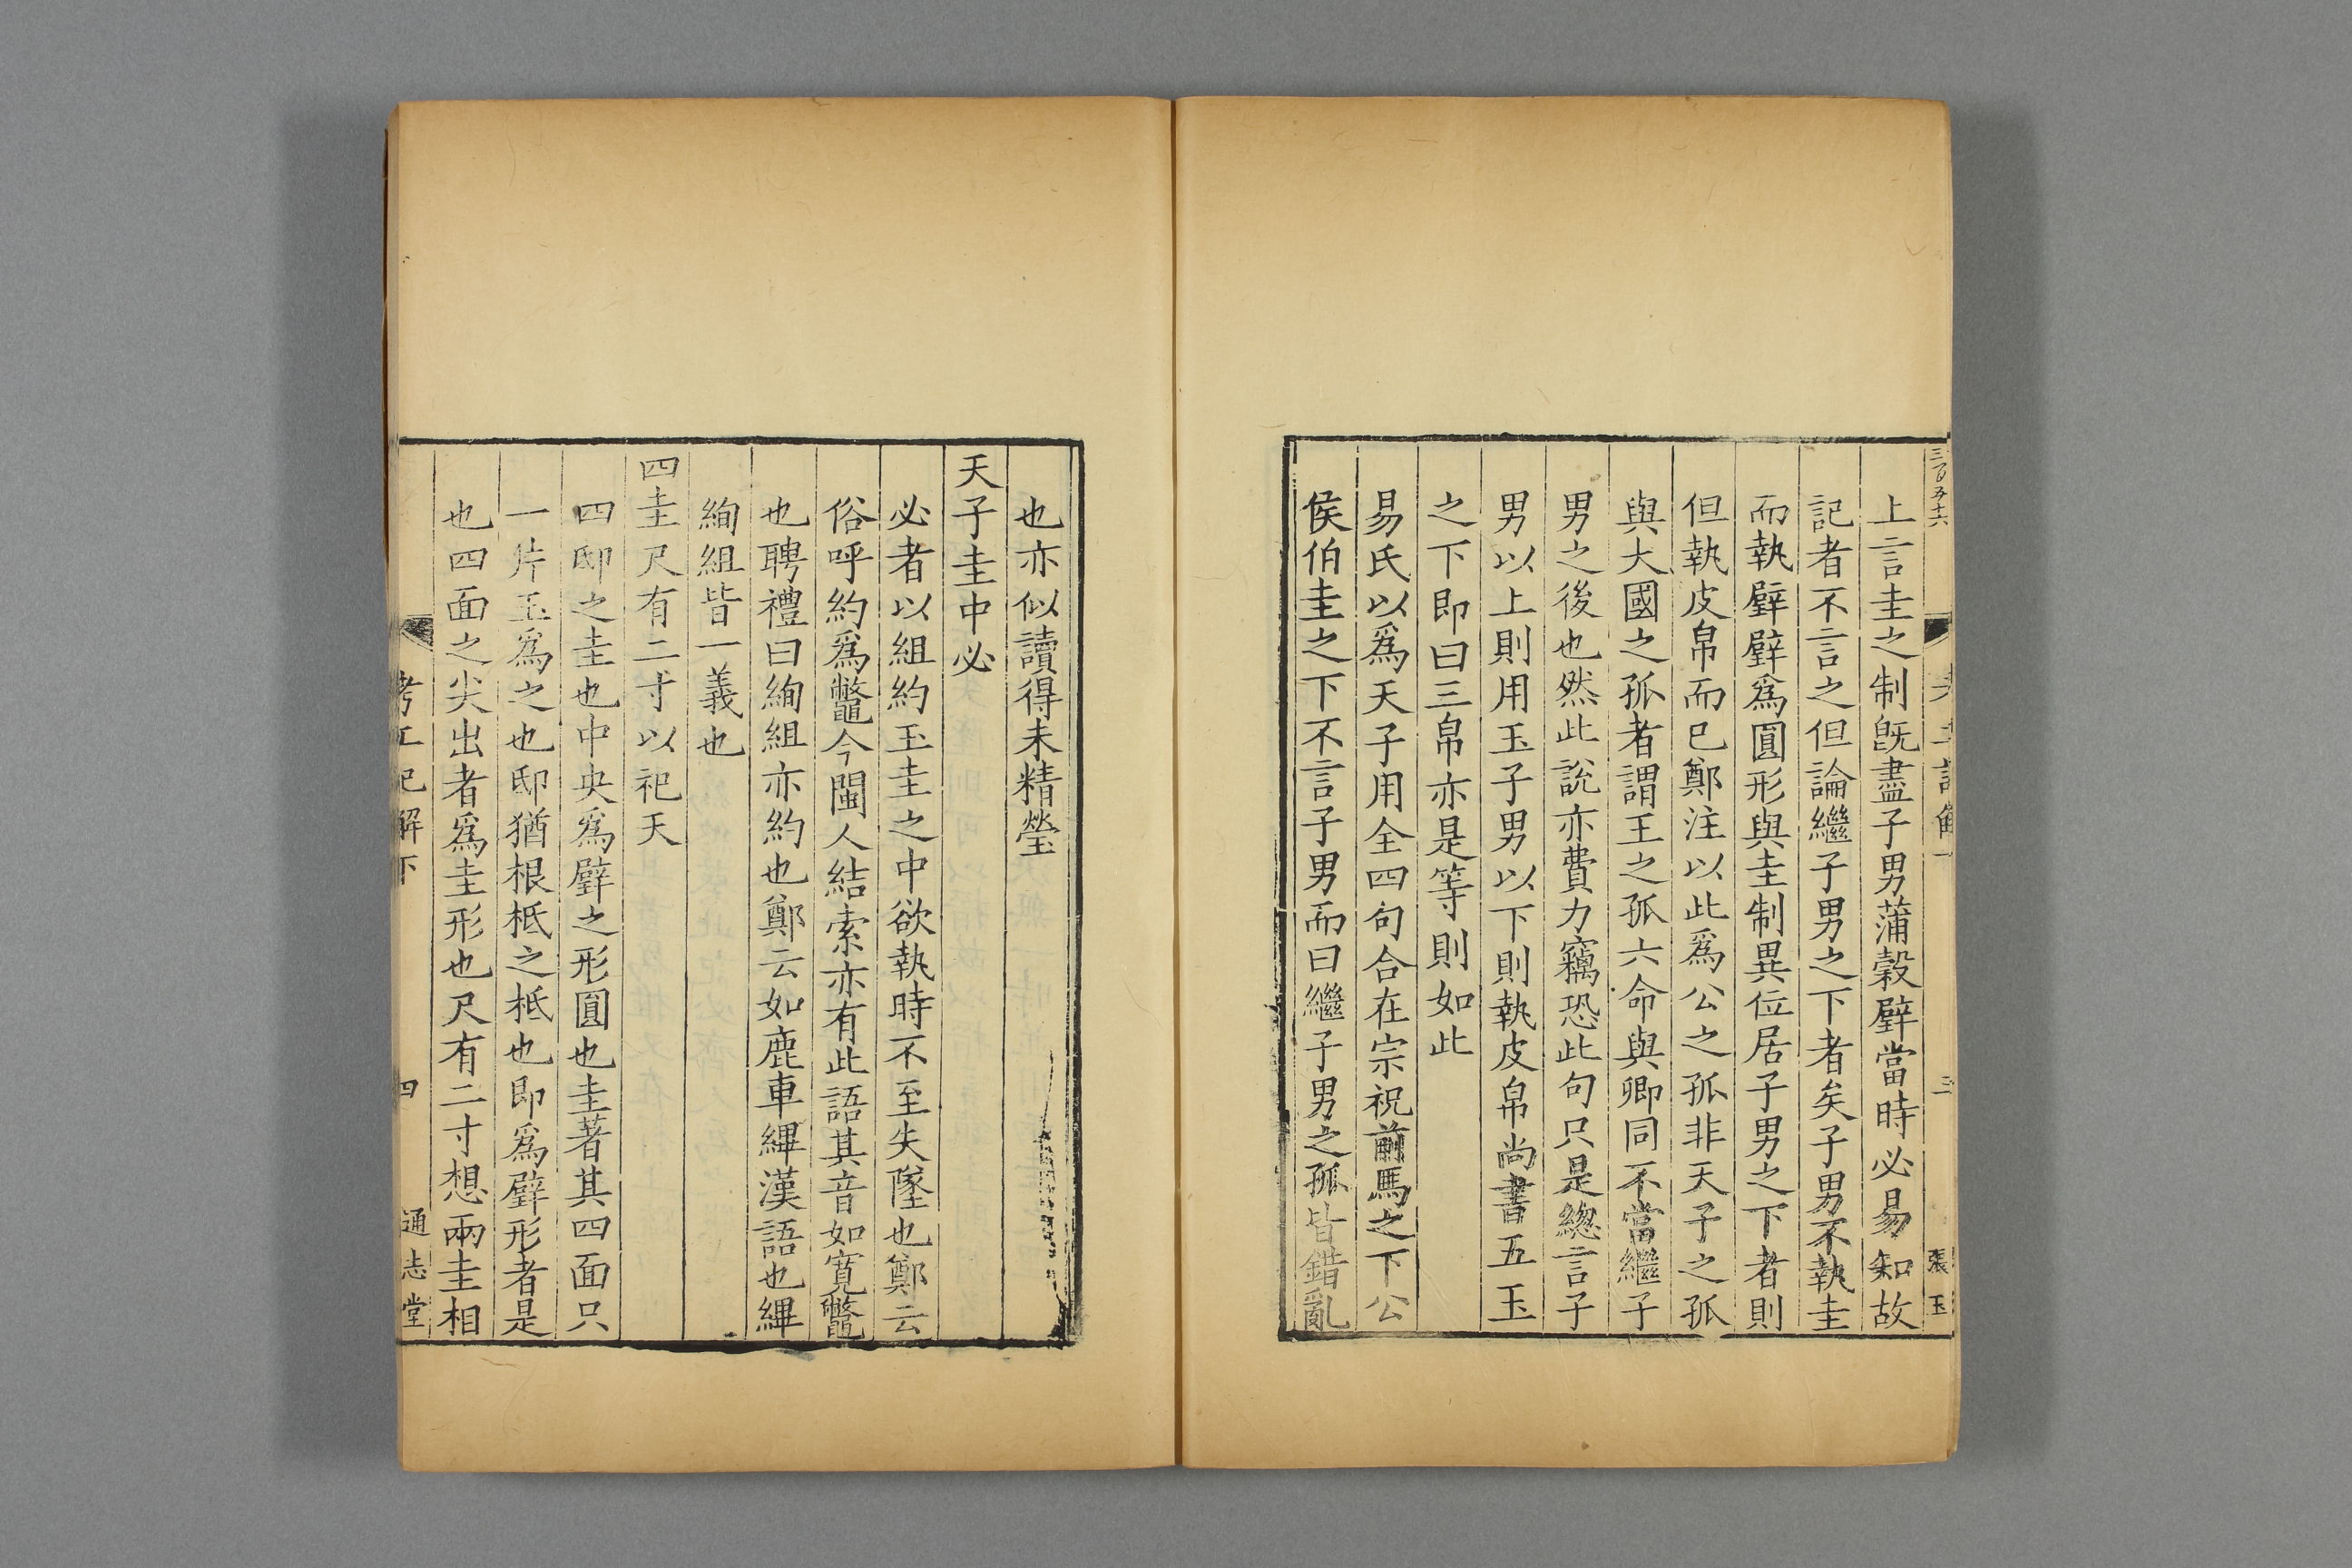 三百五十六
張玉
上言圭之制旣盡子男蒲穀璧當時必易知故
記者不言之但論繼子男之下者矣子男不執圭
而執璧璧爲圓形與圭制異位居子男之下者則
但執皮帛而已鄭注以此爲公之孤非天子之孤
與大國之孤者謂王之孤六命與卿同不當繼子
男之後也然此說亦費力竊恐此句只是總言子
男以上則用玉子男以下則執皮帛尚書五玉
之下即曰三帛亦是等則如此
易氏以爲天子用全四句合在宗祝前馬之下公
侯伯圭之下不言子男而曰繼子男之孤皆錯亂
也亦似讀得未精瑩
天子圭中必
必者以組約玉圭之中欲執時不至失墜也鄭云
俗呼約爲鼈今閩人結索亦有此語其音如寬鼈
也聘禮曰絢組亦約也鄭云如鹿車縪漢語也縪
絢組皆一義也
四圭尺有二寸以祀天
四邸之圭也中央爲璧之形圓也圭著其四面只
一片玉爲之也邸猶根柢之柢也即爲璧形者是
也四面之尖出者爲圭形也尺有二寸想兩圭相
考工記解下
四
通志堂